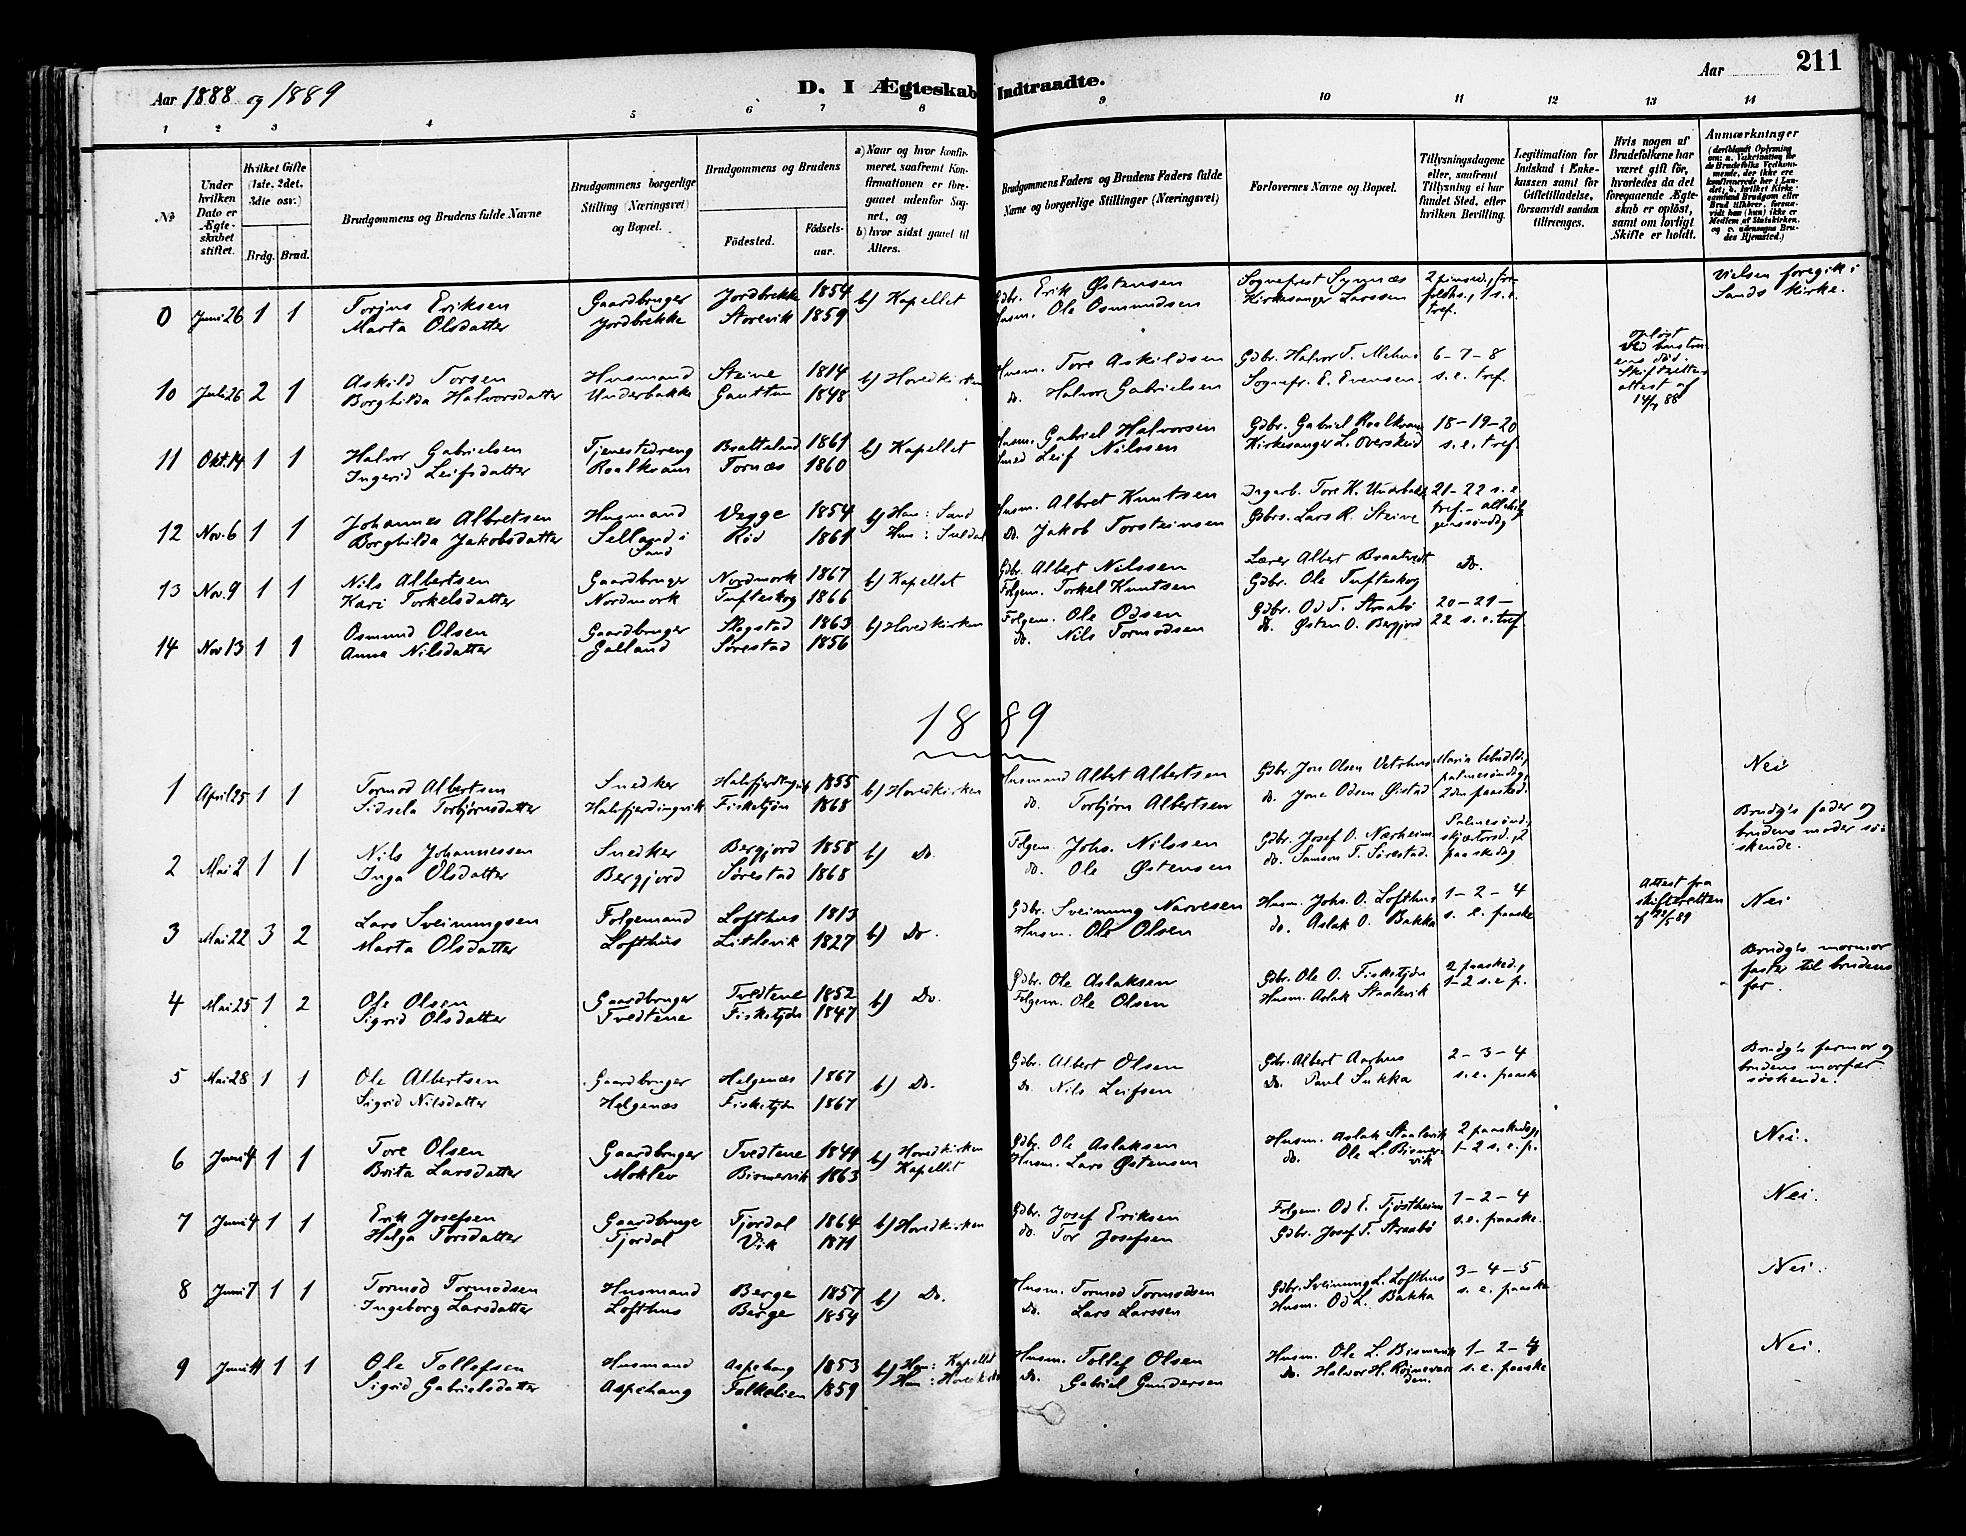 211
Aar 1888 og 1889
D. I Ægteskab Indtraadte.
Aar
1 2 3 4 5 6 7 8 9 10 11 12 13 14
No
Under hvilken Dato er Ægteskabet stiftet.
Hvilket Gifte (1ste, 2det, 3die osv.)
Brdg. Brud.
Brudgommens og Brudens fulde Navne
Brudgommens borgerlige Stilling (Næringsvei) og Bopæl.
Brudgommens og Brudens
Födested.
Födselsaar.
a) Naar og hvor konfirmeret, saafremt Konfirmationen er foregaaet udenfor Sognet, og
b) hvor sidst gaaet til Alters.
Brudgommens Faders og Brudens Faders fulde Navne og borgerlige Stillinger (Næringsvei)
Forlovernes Navne og Bopæl.
Tillysningsdagene eller, saafremt Tillysning ei har fundet Sted, efter hvilken Bevilling.
Legitimation for Indskud i Enkekassen samt for Giftetilladelse, forsaavidt saadan tiltrænges.
Hvis nogen af Brudefolkene har været gift för, hvorledes da det foregaaende Ægteskab er oplöst, samt om lovligt Skifte er holdt.
Anmærkninger
0 Juni 26 1 1 Torjus Eriksen Gaardbruger Jordbrekke 1854 b) Kapellet Gdbr. Erik Østensen Sogneprest Synnæs
Marta Olsdatter Jordbrekke Storevik 1859 Husm. Ole Osmundsen Kirkesanger Larssen 1 s. e. tref. Vielsen foregik i Sands kirke.
10 Juli 26 2 1 Askild Torsen Husmand Steine 1814 b) Hovedkirken Husm. Tore Askildsen Gdbr. Halvor T. Mehus 6-7-8
Borghilda Halvorsdatter Underbakke Gauttun 1848 do. Halvor Gabrielsen Sognefr. E. Evensen. s. e. tref. opløst ved hustruens död. Skifterettens attest af 14/7 88
11 Okt. 14 1 1 Halvor Gabrielsen Tjenestedreng Brattaland 1861 b) Kapellet Husm. Gabriel Halvorsen Gdbr. Gabriel Roalkvam 18-19-20
Ingerid Leifsdatter Roalkvam Tornæs 1860 Smed Leif Nilssen Kirkesanger L. Overskeid s. e. tref.
12 Nov. 6 1 1 Johannes Albretsen Husmand Vegge 1854 b) Han: Sand Husm. Albret Knutsen Dagarb. Tore K. Underbakk 21-22 s. e.
Borghilda Jakobsdatter Selland i Sand Röd 1861 Hun: Suldal Do. Jakob Torsteinsen Gdbrs. Lars R. Steine tref. - allehelgenssöndag
13 Nov. 9 1 1 Nils Albertsen Gaardbruger Nordmork 1867 b) Kapellet Gdbr. Albert Nilssen Lærer Albert Braatveit Do.
Kari Torkelsdatter Nordmork Tufteskog 1866 Folgem. Torkel Knutsen Gdbr. Ole Tufteskog
14 Nov 13 1 1 Osmund Olsen Gaardbruger Slogstad 1863 b) Hovedkirken Folgem. Ole Odsen Gdbr. Od T. Straabø 20-21-
Anna Nilsdatter Galland Sörestad 1856 do. Nils Tormodsen do. Østen O. Bergjord 22 s. e. tref.
1889
1 April 25 1 1 Tormod Albertsen Snedker Halsfjerdingvik 1855 b) Hovedkirken Husmand Albert Albertsen Gdbr. Jon Olsen Vetrhus Maria bebud.d., Nei
Sidsela Torbjörnsdatter Halsfjerdingvik Fisketjön 1868 do. Torbjörn Albertsen do. Jone Odsen Øistad palmesöndag, 2den paasked.
2 Mai 2 1 1 Nils Johannessen Snedker Bergjord 1858 b) Do. Folgem. Johs. Nilssen Gdbr. Josef O. Nærheim Palmesönd., Brudg's fader og
Inga Olsdatter Bergjord Sørestad 1868 do. Ole Østensen do. Samson T. Sørestad. skjærtorsd., 2 paaskedag brudens moder søskende.
3 Mai 22 3 2 Lars Sveinungsen Folgemand Lofthus 1813 b) Do. Gdbr. Sveinung Narvesen Husm. Johs. O. Lofthus 1-2-4 Attest fra skifteretten Nei
Marta Olsdatter Lofthus Litlevik 1827 Husm. Ole Olsen do. Aslak O. Bakka s. e. paaske
4 Mai 25 1 2 Ole Olsen Gaardbruger Tvedtene 1852 b) Do. Gdbr. Ole Aslaksen Gdbr. Ole O. Fisketjön 2 paasked., Brudg's mormor
Sigrid Olsdatter Tvedtene Fisketjön 1847 Folgem. Ole Olsen Husm. Aslak Staalevik 1-2 s. e. p. faster til brudens far.
5 Mai 28 1 1 Ole Albertsen Gaardbruger Helgenæs 1867 b) Do. Gdbr. Albert Olsen Gdbr. Albert Aarhus 2-3-4 Brudg's farmor og
Sigrid Nilsdatter Helgenæs Fisketjön 1867 Do. Nils Leifsen Do. Paul Sukka s. e. paaske brudens morfar søskende.
6 Juni 4 1 1 Tore Olsen Gaardbruger Tvedtene 1841 b) Hovedkirken Gdbr. Ole Aslaksen Husm. Aslak Staalevik 2 paaskedag, Nei.
Brita Larsdatter Moklev Bismervik 1863 Kapellet Husm. Lars Østensen do. Ole L. Bismervik 1-2 s. e. p.
7 Juni 4 1 1 Erik Josefsen Gaardbruger Fjordal 1864 b) Hovedkirken Gdbr. Josef Eriksen Folgem. Od E. Tjöstheim 1-2-4 Nei.
Helga Torsdatter Fjordal Vik 1871 do. Tor Josefsen Gdbr. Josef T. Straabø s. e. paaske.
8 Juni 7 1 1 Tormod Tormodsen Husmand Berge 1857 b) Do. Husm. Tormod Tormodsen Gdbr. Sveinung L. Lofthus 3-4-5 Nei.
Ingeborg Larsdatter Lofthus Berge 1854 Do. Lars Larssen Husm. Od L. Bakka s. e. paaske
9 Juni 1 1 Ole Tollefsen Husmand Aspehaug 1853 b) Han: Kapellet Husm. Tollef Olsen Husm. Ole L. Bismervik 1-2-4 Nei.
Sigrid Gabrielsdatter Aspehaug Falkalien 1859 Hun: Hovedkirken Do. Gabriel Gundersen Do. Halvor H. s. e. paaske